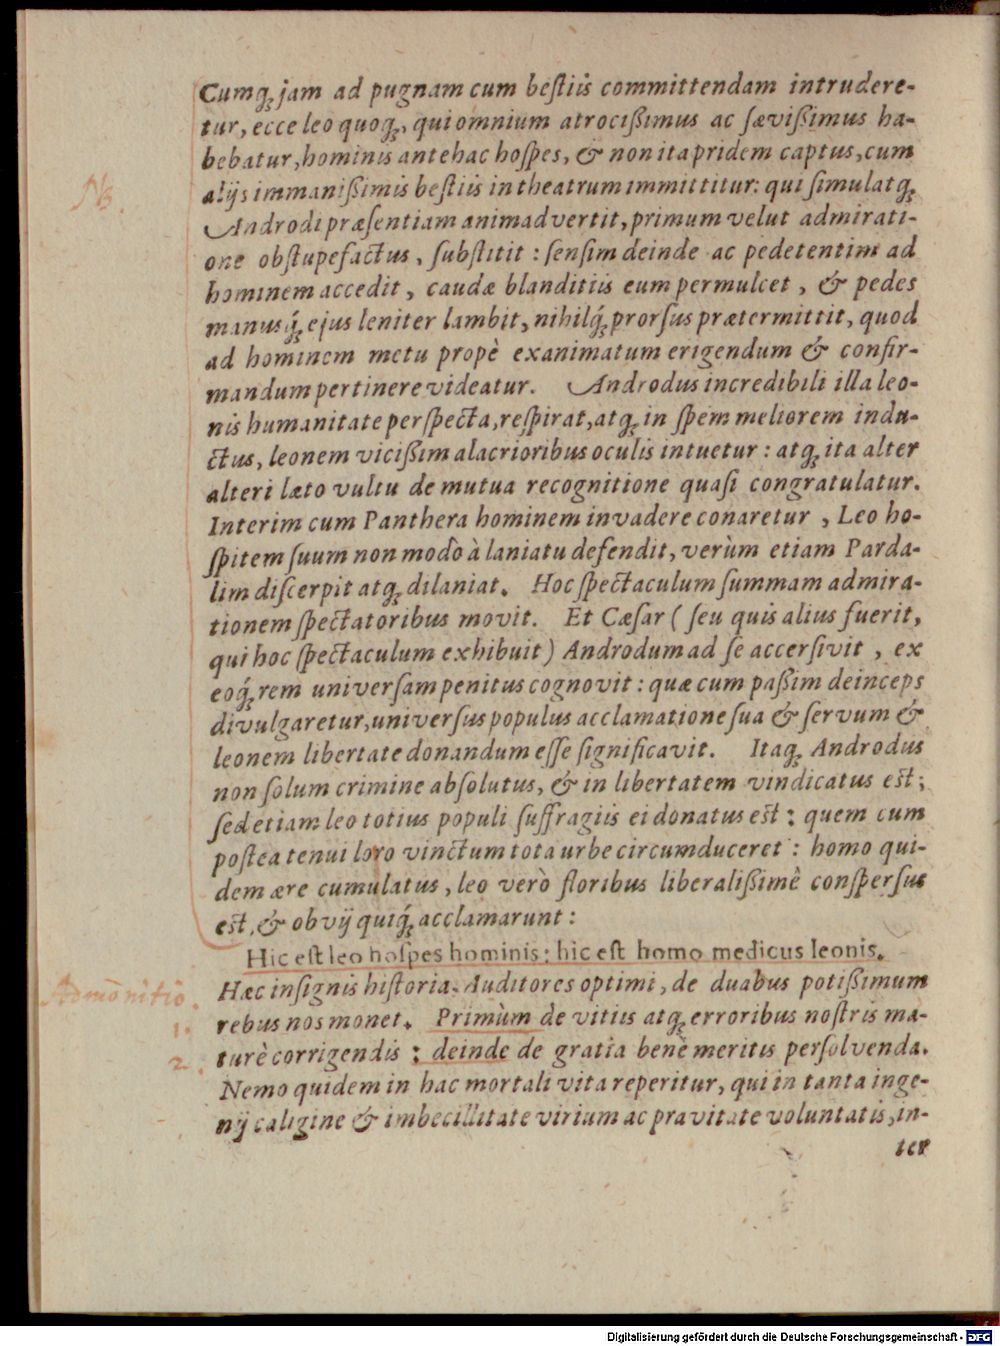 Cumq; jam ad pugnam cum beſtiis committendam intrudere-
tur, ecce leo quoq;, qui omnium atrocißimus ac ſævißimus ha-
bebatur, hominis antehac hoſpes, & non ita pridem captus, cum
alijs immanißimis beſtiis in theatrum immittitur: qui ſimulatq;
Androdi præſentiam animadvertit, primum velut admirati-
one obſtupefactus, ſubſtitit: ſenſim deinde ac pedetentim ad
hominem accedit, caudæ blanditiis eum permulcet, & pedes
manusq́; ejus leniter lambit, nihilq́; prorſus prætermittit, quod
ad hominem metu propè exanimatum erigendum & confir-
mandum pertinere videatur. Androdus incredibili illa leo-
nis humanitate perſpecta, reſpirat, atq; in ſpem meliorem indu-
ctus, leonem vicißim alacrioribus oculis intuetur: atq; ita alter
alteri læto vultu de mutua recognitione quaſi congratulatur.
Interim cum Panthera hominem invadere conaretur, Leo ho-
ſpitem ſuum non modò à laniatu defendit, verùm etiam Parda-
lim diſcerpit atq; dilaniat. Hoc ſpectaculum ſummam admira-
tionem ſpectatoribus movit. Et Cæſar (ſeu quis alius fuerit,
qui hoc ſpectaculum exhibuit) Androdum ad ſe accerſivit, ex
eoq́; rem univerſam penitus cognovit: quæ cum paßim deinceps
divulgaretur, univerſus populus acclamatione ſua & ſervum &
leonem libertate donandum eſſe ſignificavit. Itaq; Androdus
non ſolum crimine abſolutus, & in libertatem vindicatus est;
ſed etiam leo totius populi ſuffragiis ei donatus est: quem cum
poſtea tenui loro vinctum tota urbe circumduceret: homo qui-
dem ære cumulatus, leo verò floribus liberalißimè conſperſus
est, & obvij quiq́; acclamarunt:
Hic eſt leo hoſpes hominis: hic eſt homo medicus leonis.
Hæc inſignis hiſtoria, Auditores optimi, de duabus potißimum
Admonitio.
rebus nos monet. Primùm de vitiis atq; erroribus noſtris ma-
1.
turè corrigendis: deinde de gratia benè meritis perſolvenda.
2.
Nemo quidem in hac mortali vita reperitur, qui in tanta inge-
nij caligine & imbecillitate virium ac pravitate voluntatis, in-
ter
Digitalisierung gefördert durch die Deutsche Forschungsgemeinschaft - DFG